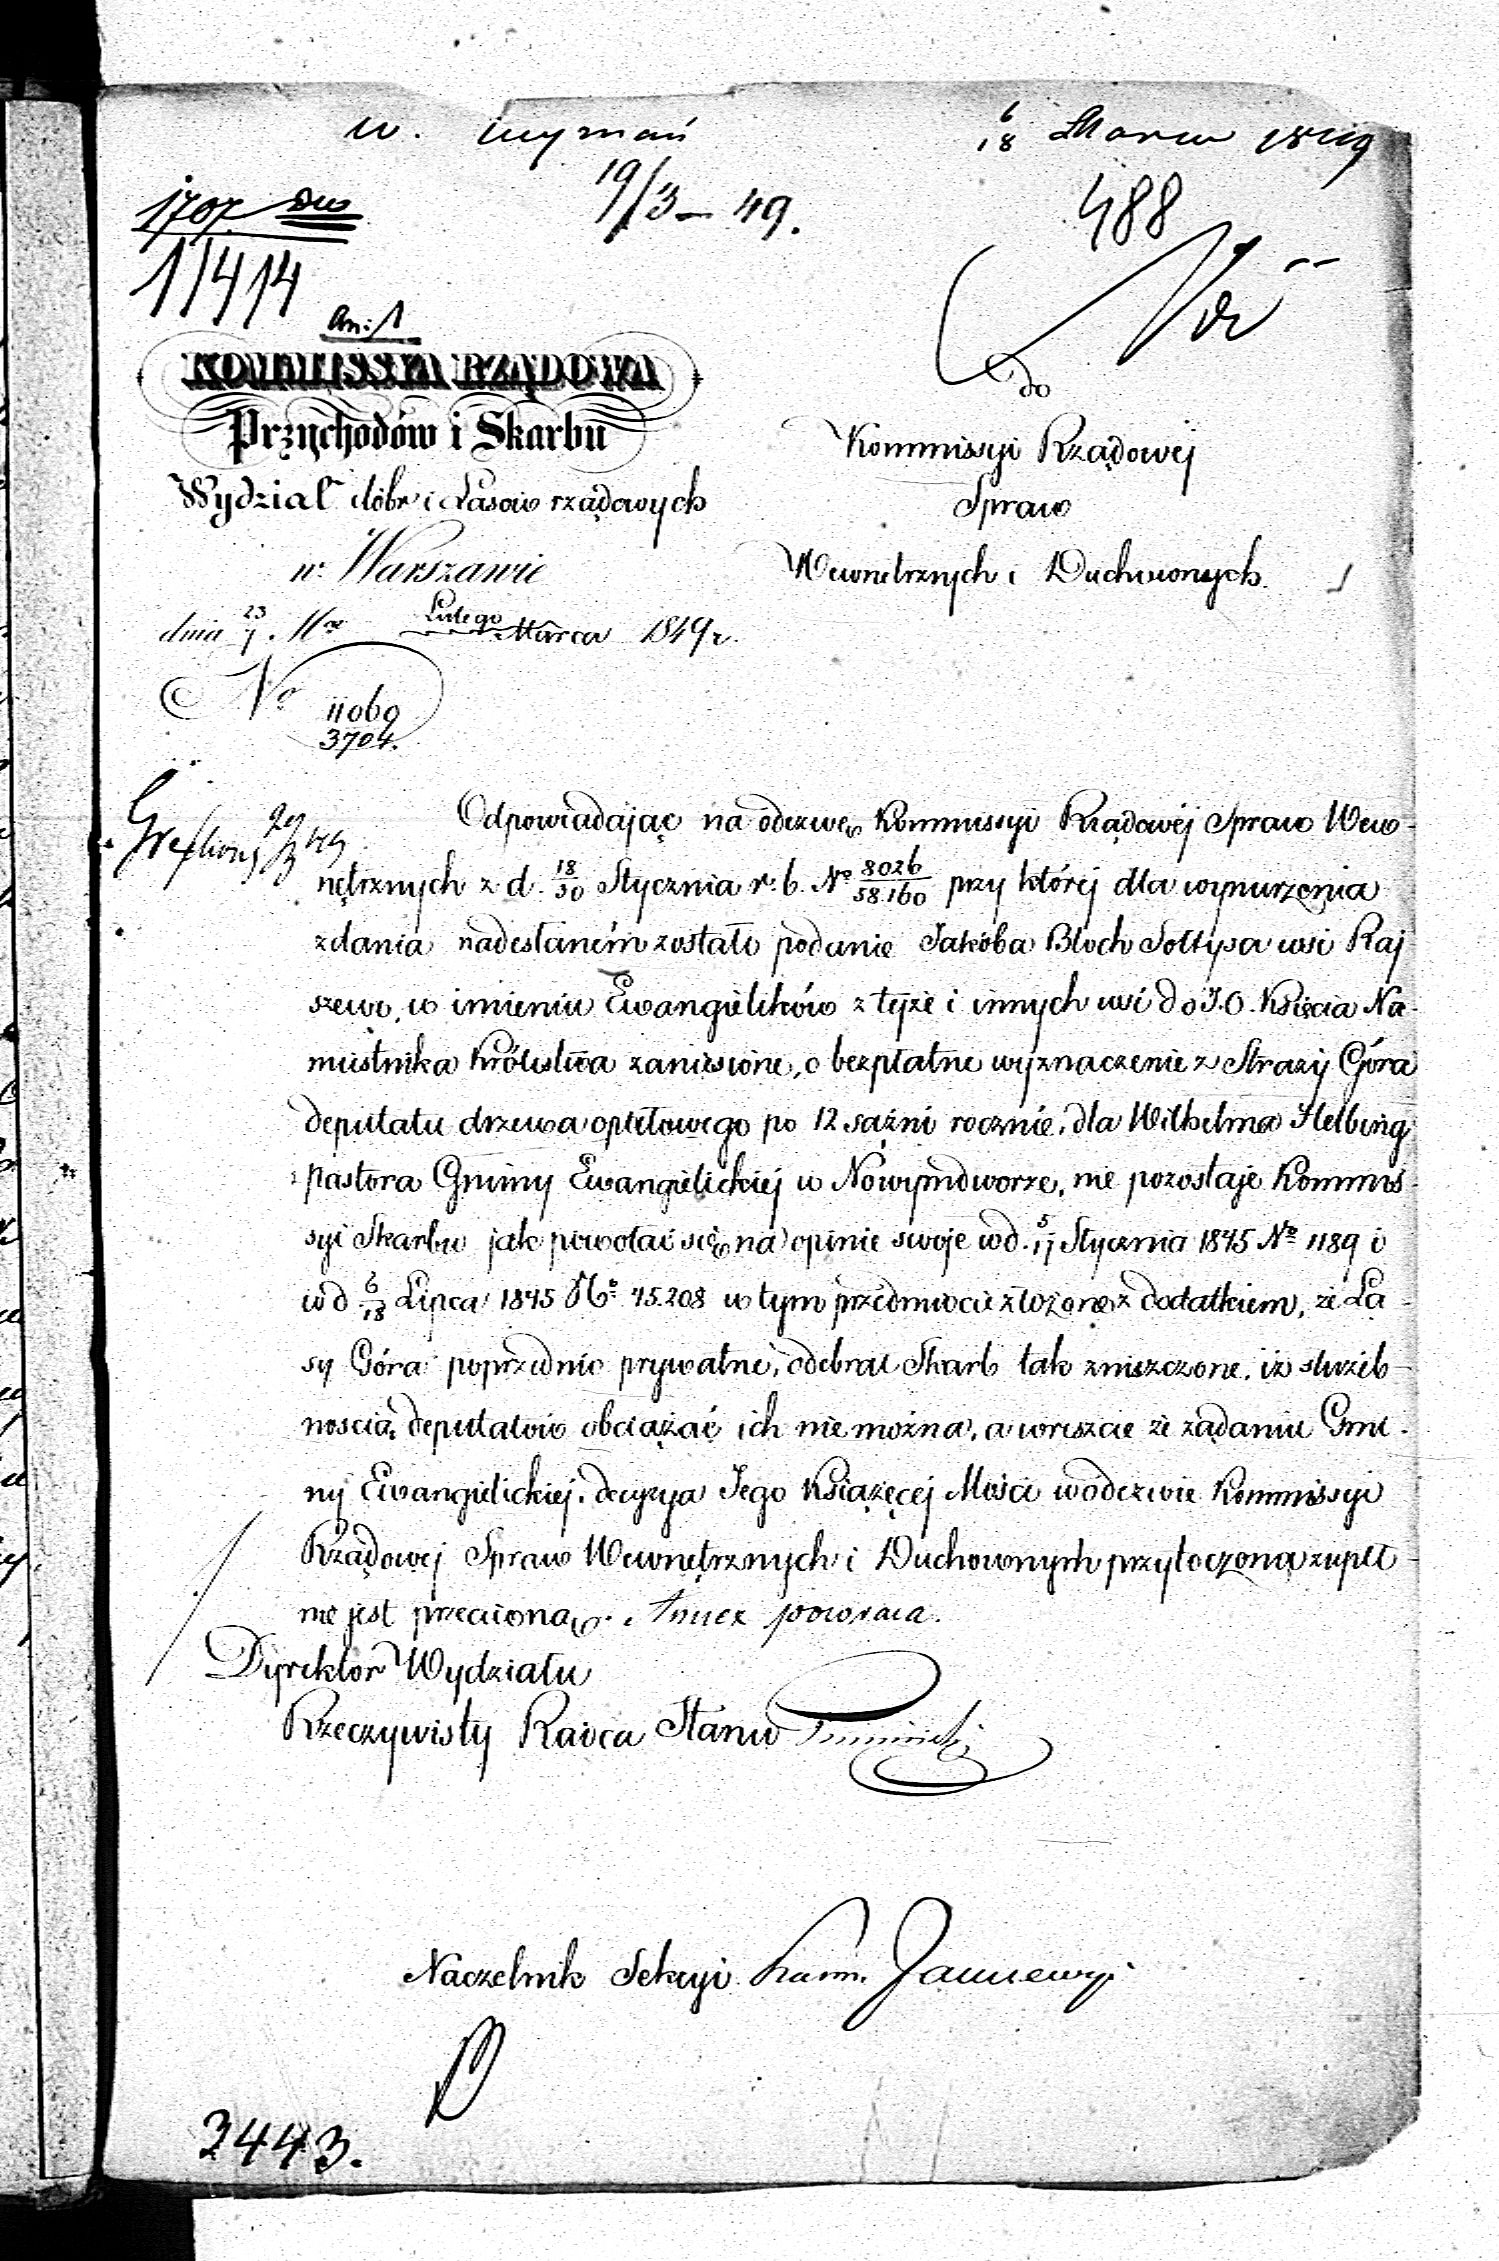 w. wyznań
6/18 Marca 1849
19/3 – 49.
488
1707
11414
An: 1
KOMMISSYA RZĄDOWA
Przychodów i Skarbu
Wydział dóbr i Lasów rządowych
w Warszawie
dnia 23/7 Lutego/Marca 1849 r.
No 11069/3704.
do
Kommissyi Rządowej
Spraw
Wewnetrznych i Duchownych
Odpowiadając na odezwę Kommissyi Rządowéj Spraw Wew-
nętrznych z d. 18/30 Stycznia r. b. No 8026/58.160 przy któréj dla wynurzenia
zdania nadesłaném zostało podanie Jakóba Bloch Sołtysa wsi Raj
szewo, w imieniu Ewangielików z tejże i innych wsi do J. O. Księcia Na-
miestnika Królestwa zaniesione, o bezpłatne wyznaczenie z Straży Góra
deputatu drzewa opałowego po 12 sążni rocznie, dla Wilhelma Helbing
pastora Gminy Ewangielickiej w Nowymdworze, nie pozostaje Kommis-
syi Skarbu jak powołać się na opinie swoje w d. 5/17 Stycznia 1845 No 1189 i
w d 6/18 Lipca 1845 No 45.208 w tym przedmiocie złożone z dodatkiem, że La-
sy Góra poprzednio prywatne, odebrał Skarb tak zniszczone, iż służeb-
nością deputatów obciążać ich nie można, a wreszcie że żądaniu Gmi-
ny Ewangielickiej, decyzya Jego Książęcej Mości w odezwie Kommissyi
Rządowej Spraw Wewnętrznych i Duchownych przytoczona zupeł-
nie jest przeciwną. Annex powraca.
Dyrektor Wydziału
Rzeczywisty Radca Stanu
Naczelnik Sekcyi
2443.